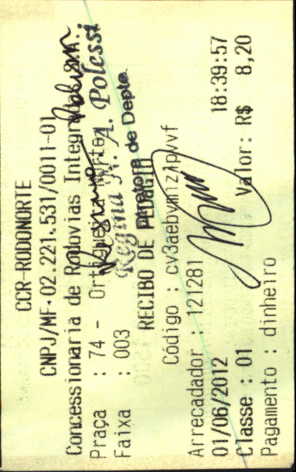 CCR-RODONORTE
CNPJ/MF-02.221.531/0011-01
Concessionaria de Rodovias Integr
Praça : 74 - Ortigueira Norte
Faixa : 003
Regina A. Polessi
Diretora de Depto.
RECIBO DE PEDAGIO
Código :
Arrecadador : 121281
01/06/2012 18:39:57
Classe : 01 Valor: R$ 8,20
Pagamento : dinheiro